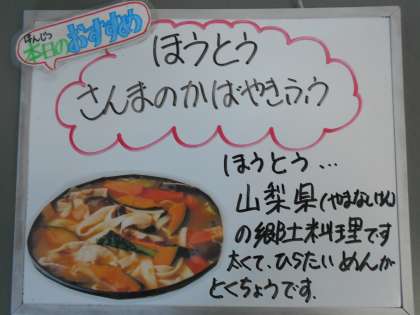 ほんじつ
本日のおすすめ
ほうとう
さんまのかばやきふう
ほうとう…
山梨県(やまなしけん)
の郷土料理です
太くて、ひらたいめんが
とくちょうです.